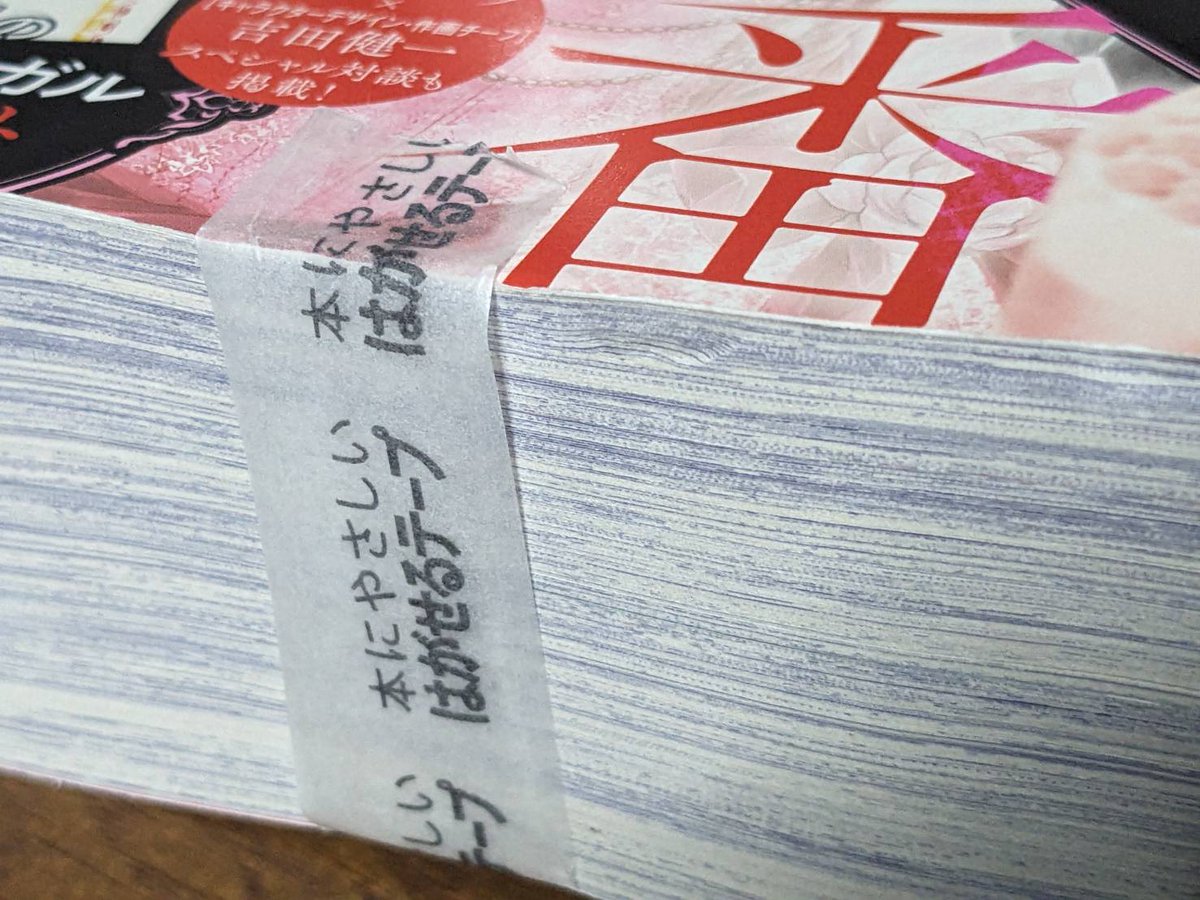 の
ガル
×
「キャラクターデザイン・作画チーフ」
吉田健一
スペシャル対談も
掲載!
番
本にやさしい
はがせるテープ
本にやさしい
はがせるテープ
しい
テープ